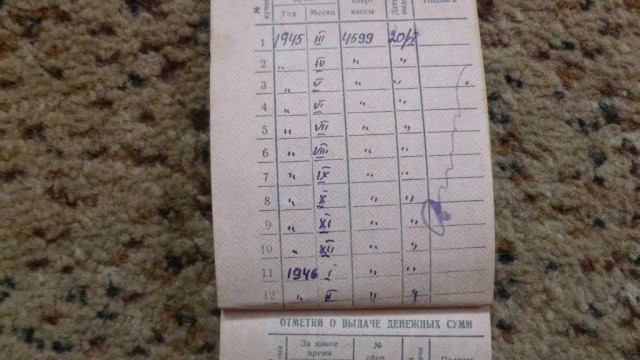 № Год Месяц кассы
1 1945 III 4599 20/II
2 „ IV „ „
3 „ V „ „
4 „ VI „ „
5 „ VII „ „
6 „ VIII „ „
7 „ IX „ „
8 „ X „ „
9 „ XI „ „
10 „ XII „ „
11 1946 I „ „
12 „ II „ „
ОТМЕТКИ О ВЫДАЧЕ ДЕНЕЖНЫХ СУММ
За какое №
время сбер